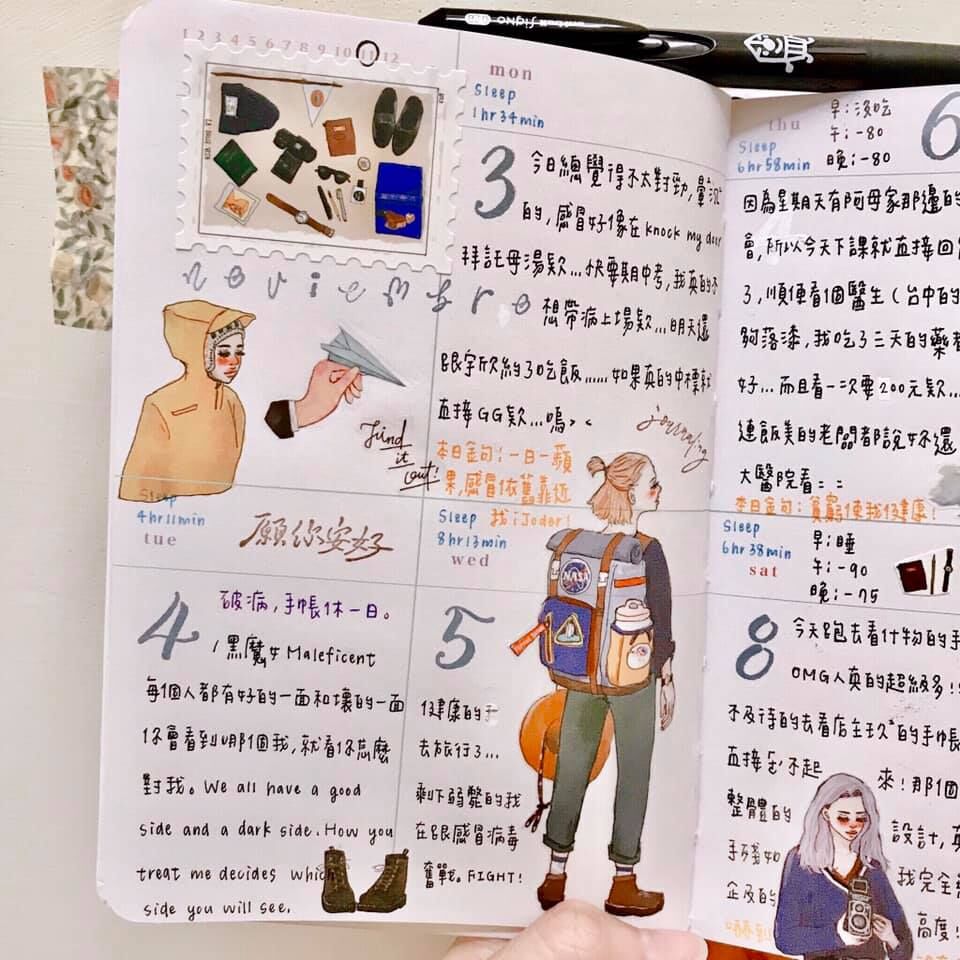 uni-ball SIGNO
1 2 3 4 5 6 7 8 9 10 11 12
noviembre
Find
it
out!
願你安好
mon
Sleep
1hr34min
3
今日總覺得不太對勁,暈沉
的,感冒好像在knock my door
拜託母湯欸...快要期中考,我真的不
想帶病上場欸...明天還
跟宇欣約了吃飯......如果真的中標就
直接GG欸...嗚> <
本日金句:一日一蘋
果,感冒依舊靠近
我iJodor!
journaling
Sleep
4hr11min
tue
4
破病,手帳休一日。
/黑魔女Maleficent
每個人都有好的一面和壞的一面
你會看到哪個我,就看你怎麼
對我。We all have a good
side and a dark side. How you
treat me decides which
side you will see.
Sleep
8hr13min
wed
5
健康的
去旅行了...
剩下弱斃的我
在跟感冒病毒
奮戰。FIGHT!
NASA
thu
Sleep
6hr58min
早:沒吃
午:-80
晚:-80
6
因為星期天有阿母家那邊的
會,所以今天下課就直接回
了,順便看個醫生(台中的
夠落漆,我吃了三天的藥
好...而且看一次要200元欸...
連飯美的老闆都說妳還
大醫院看= =
本日金句:貧窮使我健康!
Sleep
6hr38min
sat
早:睡
午:-90
晚:-75
8
今天跑去看什物的手
OMG人真的超級多!
不及待的去看店主玟的手帳
直接 不起
來!那個
整體的
設計,真
手殘如
我完全
企及的
高度!